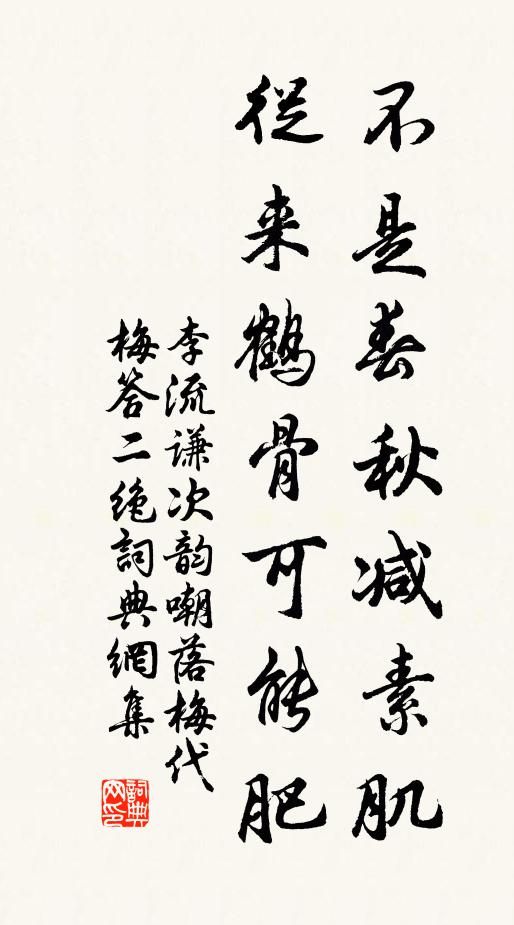 不是春秋减素肌
從来鶴骨可能肥
李流谦次韵嘲落梅代
梅答二绝詞典網集
詞典网印